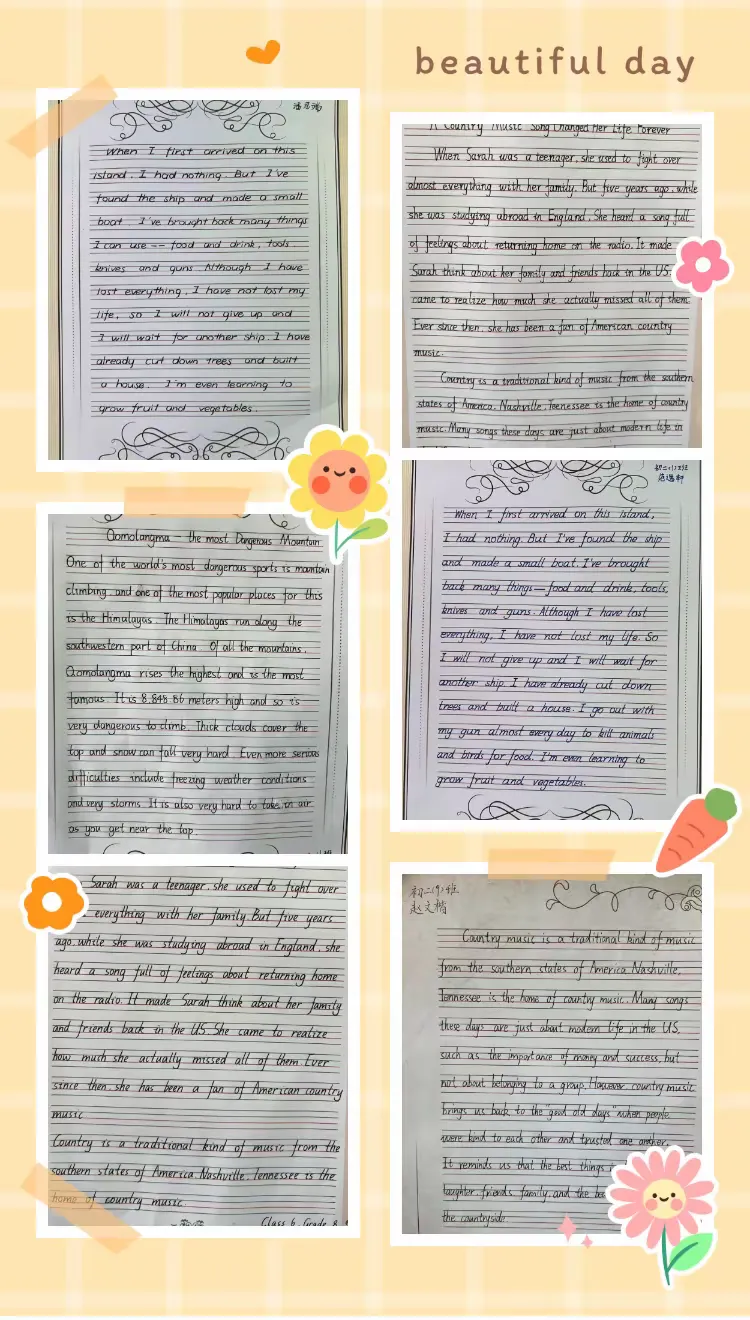 beautiful day
When I first arrived on this
island, I had nothing. But I've
found the ship and made a small
boat. I've brought back many things
I can use -- food and drink, tools,
knives and guns. Although I have
lost everything, I have not lost my
life, so I will not give up and
I will wait for another ship. I have
already cut down trees and built
a house. I'm even learning to
grow fruit and vegetables.
A Country Music Song Changed Her Life Forever
When Sarah was a teenager, she used to fight over
almost everything with her family. But five years ago, while
she was studying abroad in England, She heard a song full
of feelings about returning home on the radio. It made
Sarah think about her family and friends back in the US.
came to realize how much she actually missed all of them.
Ever since then, she has been a fan of American country
music.
Country is a traditional kind of music from the southern
states of America. Nashville, Teenessee is the home of country
music. Many songs these days are just about modern life in
Qomolangma - the most Dangerous Mountain
One of the world's most dangerous sports is mountain
climbing, and one of the most popular places for this
is the Himalayas. The Himalayas run along the
southwestern part of China. Of all the mountains,
Qomolangma rises the highest and is the most
famous. It is 8,848.86 meters high and so is
very dangerous to climb. Thick clouds cover the
top and snow can fall very hard. Even more serious
difficulties include freezing weather conditions
and very storms. It is also very hard to take in air
as you get near the top.
When I first arrived on this island,
I had nothing. But I've found the ship
and made a small boat. I've brought
back many things—food and drink, tools,
knives and guns. Although I have lost
everything, I have not lost my life. So
I will not give up and I will wait for
another ship. I have already cut down
trees and built a house. I go out with
my gun almost every day to kill animals
and birds for food. I'm even learning to
grow fruit and vegetables.
Sarah was a teenager, she used to fight over
everything with her family. But five years
ago, while she was studying abroad in England, she
heard a song full of feelings about returning home
on the radio. It made Sarah think about her family
and friends back in the US. She came to realize
how much she actually missed all of them. Ever
since then, she has been a fan of American country
music.
Country is a traditional kind of music from the
southern states of America. Nashville, Tennessee is the
home of country music.
Class 6, Grade 8
初二(9)班
赵文楷
Country music is a traditional kind of music
from the southern states of America. Nashville,
Tennessee is the home of country music. Many songs
these days are just about modern life in the US,
such as the importance of money and success, but
not about belonging to a group. However country music
brings us back to the "good old days" when people
were kind to each other and trusted one another.
It reminds us that the best things
laughter, friends, family, and the
the countryside.